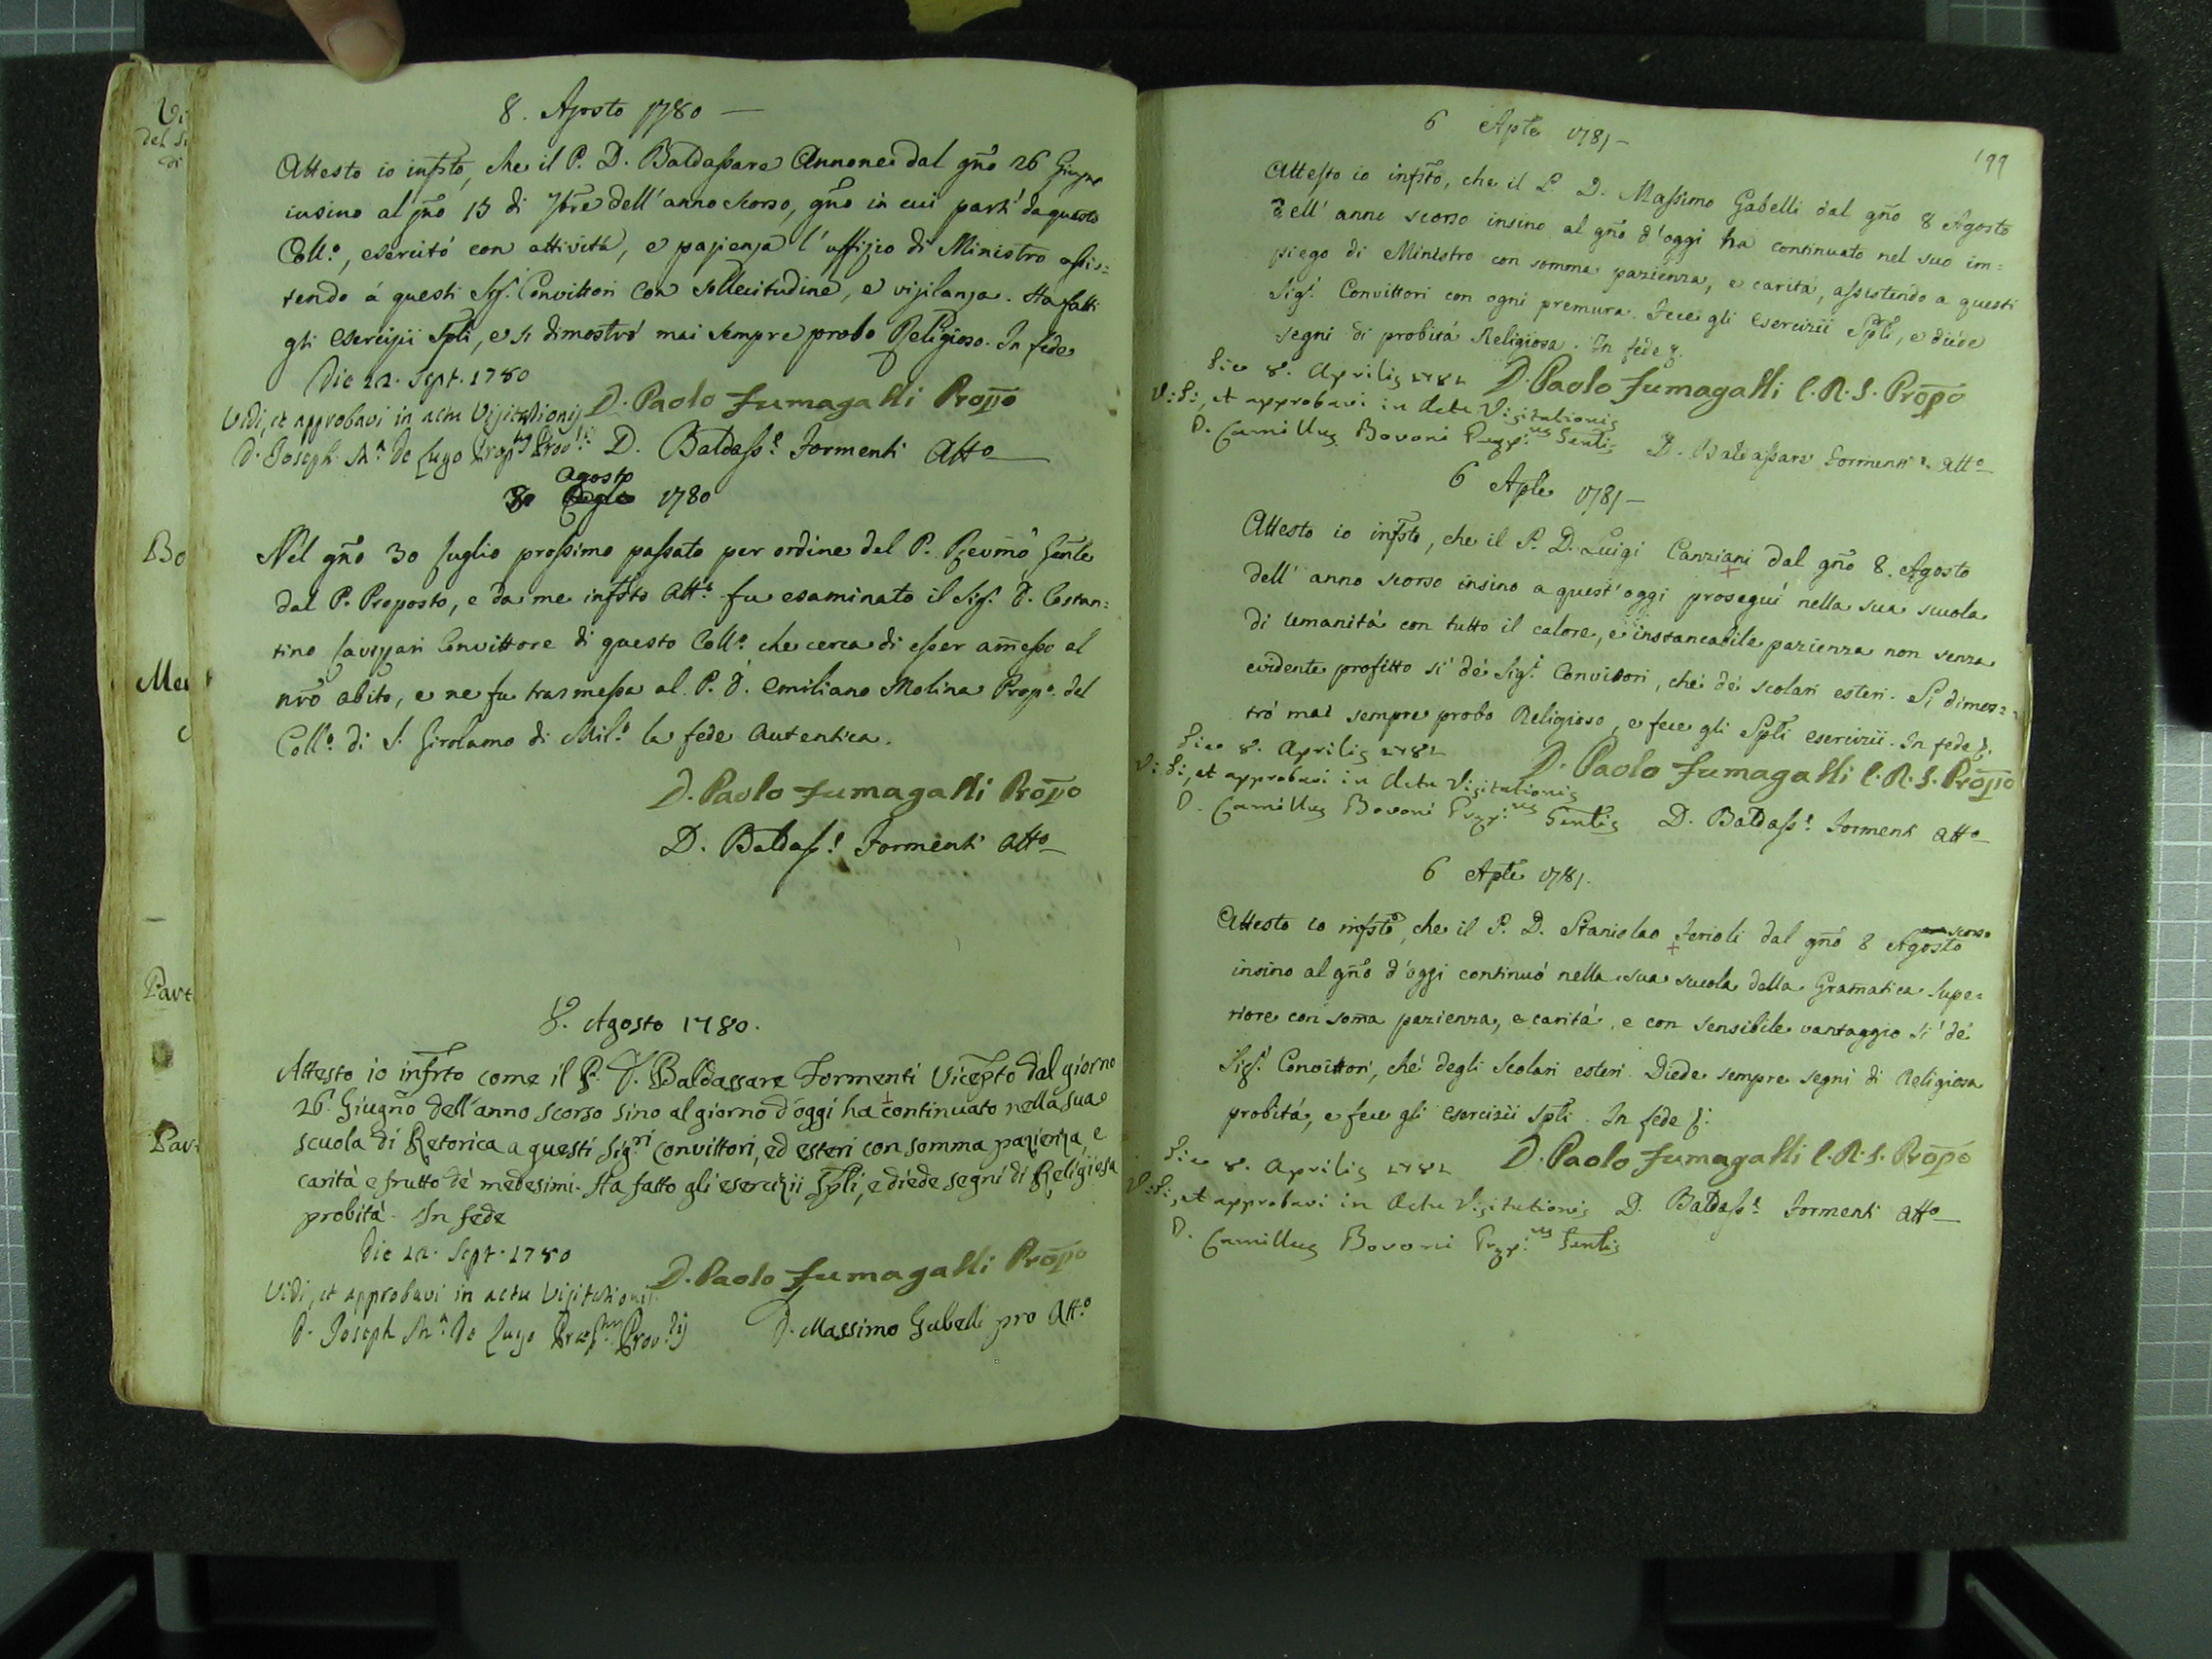 8. Agosto 1780 —
Attesto io infrto, che il P. D. Baldassare Annone dal gno 26 Giugno
insino al gno 15 di 7bre dell'anno scorso, gno in cui partì da questo
Collo, esercitò con attività, e pazienza l'uffizio di Ministro assis=
tendo á questi Sigi Convittori con sollecitudine, e vigilanza. Ha fatti
gli esercizii Spli, e si dimostrò mai sempre probo Religioso. In fede
Die 22. Sept. 1780
Vidi, et approbavi in actu Visitationis
D. Paolo Fumagalli Propo
D. Joseph Ma De Lugo Praeptus Provlis
D. Baldasse Formenti Atto
Agosto
8 1780
Nel gno 30 Luglio prossimo passato per ordine del P. Revmo Gnle
dal P. Proposto, e da me infrto Atto fu esaminato il Sigr D. Costan=
tino Convittore di questo Collo che cerca di esser amesso al
nro abito, e ne fu trasmessa al P. D. Emiliano Molina Propo del
Collo di S. Girolamo di Milo la fede autentica.
D. Paolo Fumagalli Propo
D. Baldasse Formenti Atto
8. Agosto 1780.
Attesto io infrto come il P. D. Baldassare Formenti Vicepto dal giorno
26. Giugno dell'anno scorso sino al giorno d'oggi ha continuato nella sua
scuola di Retorica a questi Sigri Convittori, ed esteri con somma pazienza, e
carità e frutto dé medesimi. Ha fatto gli esercizii Spli, e diede segni di Religiosa
probità. In fede
Die 22. Sept. 1780
Vidi, et approbavi in actu Visitationis
D. Paolo Fumagalli Propo
D. Joseph Ma De Lugo Praeptus Provlis
D. Massimo Gabelli pro Atto
199
6 Aple 1781 —
Attesto io infrto, che il P. D. Massimo Gabelli dal gno 8 Agosto
dell'anno scorso insino al gno d'oggi ha continuato nel suo im=
piego di Ministro con somma pazienza, e carità, assistendo a questi
Sigi Convittori con ogni premura. Fece gli esercizii Spli, e diede
segni di probità Religiosa. In fede &.
Die 8. Aprilis 1781
D. Paolo Fumagalli C.R.S. Propo
Vidi, et approbavi in Actu Visitationis
D. Camillus Bovoni Praepus Gnlis
D. Baldassare Formenti Atto
6 Aple 1781 —
Attesto io infrto, che il P. D. Luigi Canziani dal gno 8. Agosto
dell'anno scorso insino a quest'oggi proseguì nella sua scuola
di Umanità con tutto il calore, e instancabile pazienza non senza
evidente profitto sì dé Sigi Convittori, ché dé scolari esteri. Si dimos=
trò mai sempre probo Religioso, e fece gli Spli esercizii. In fede &.
Die 8. Aprilis 1781
D. Paolo Fumagalli C.R.S. Propo
Vidi, et approbavi in Actu Visitationis
D. Camillus Bovoni Praepus Gnlis
D. Baldasse Formenti Atto
6 Aple 1781.
Attesto io infrto, che il P. D. Stanislao Ferioli dal gno 8 Agosto scorso
insino al gno d'oggi continuò nella sua scuola della Gramatica Supe=
riore con soma pazienza, e carità, e con sensibile vantaggio sì dé
Sigi Convittori, ché degli Scolari esteri. Diede sempre segni di Religiosa
probità, e fece gli esercizii Spli. In fede &.
Die 8. Aprilis 1781
D. Paolo Fumagalli C.R.S. Propo
Vidi, et approbavi in Actu Visitationis
D. Baldasse Formenti Atto
D. Camillus Bovoni Praepus Gnlis